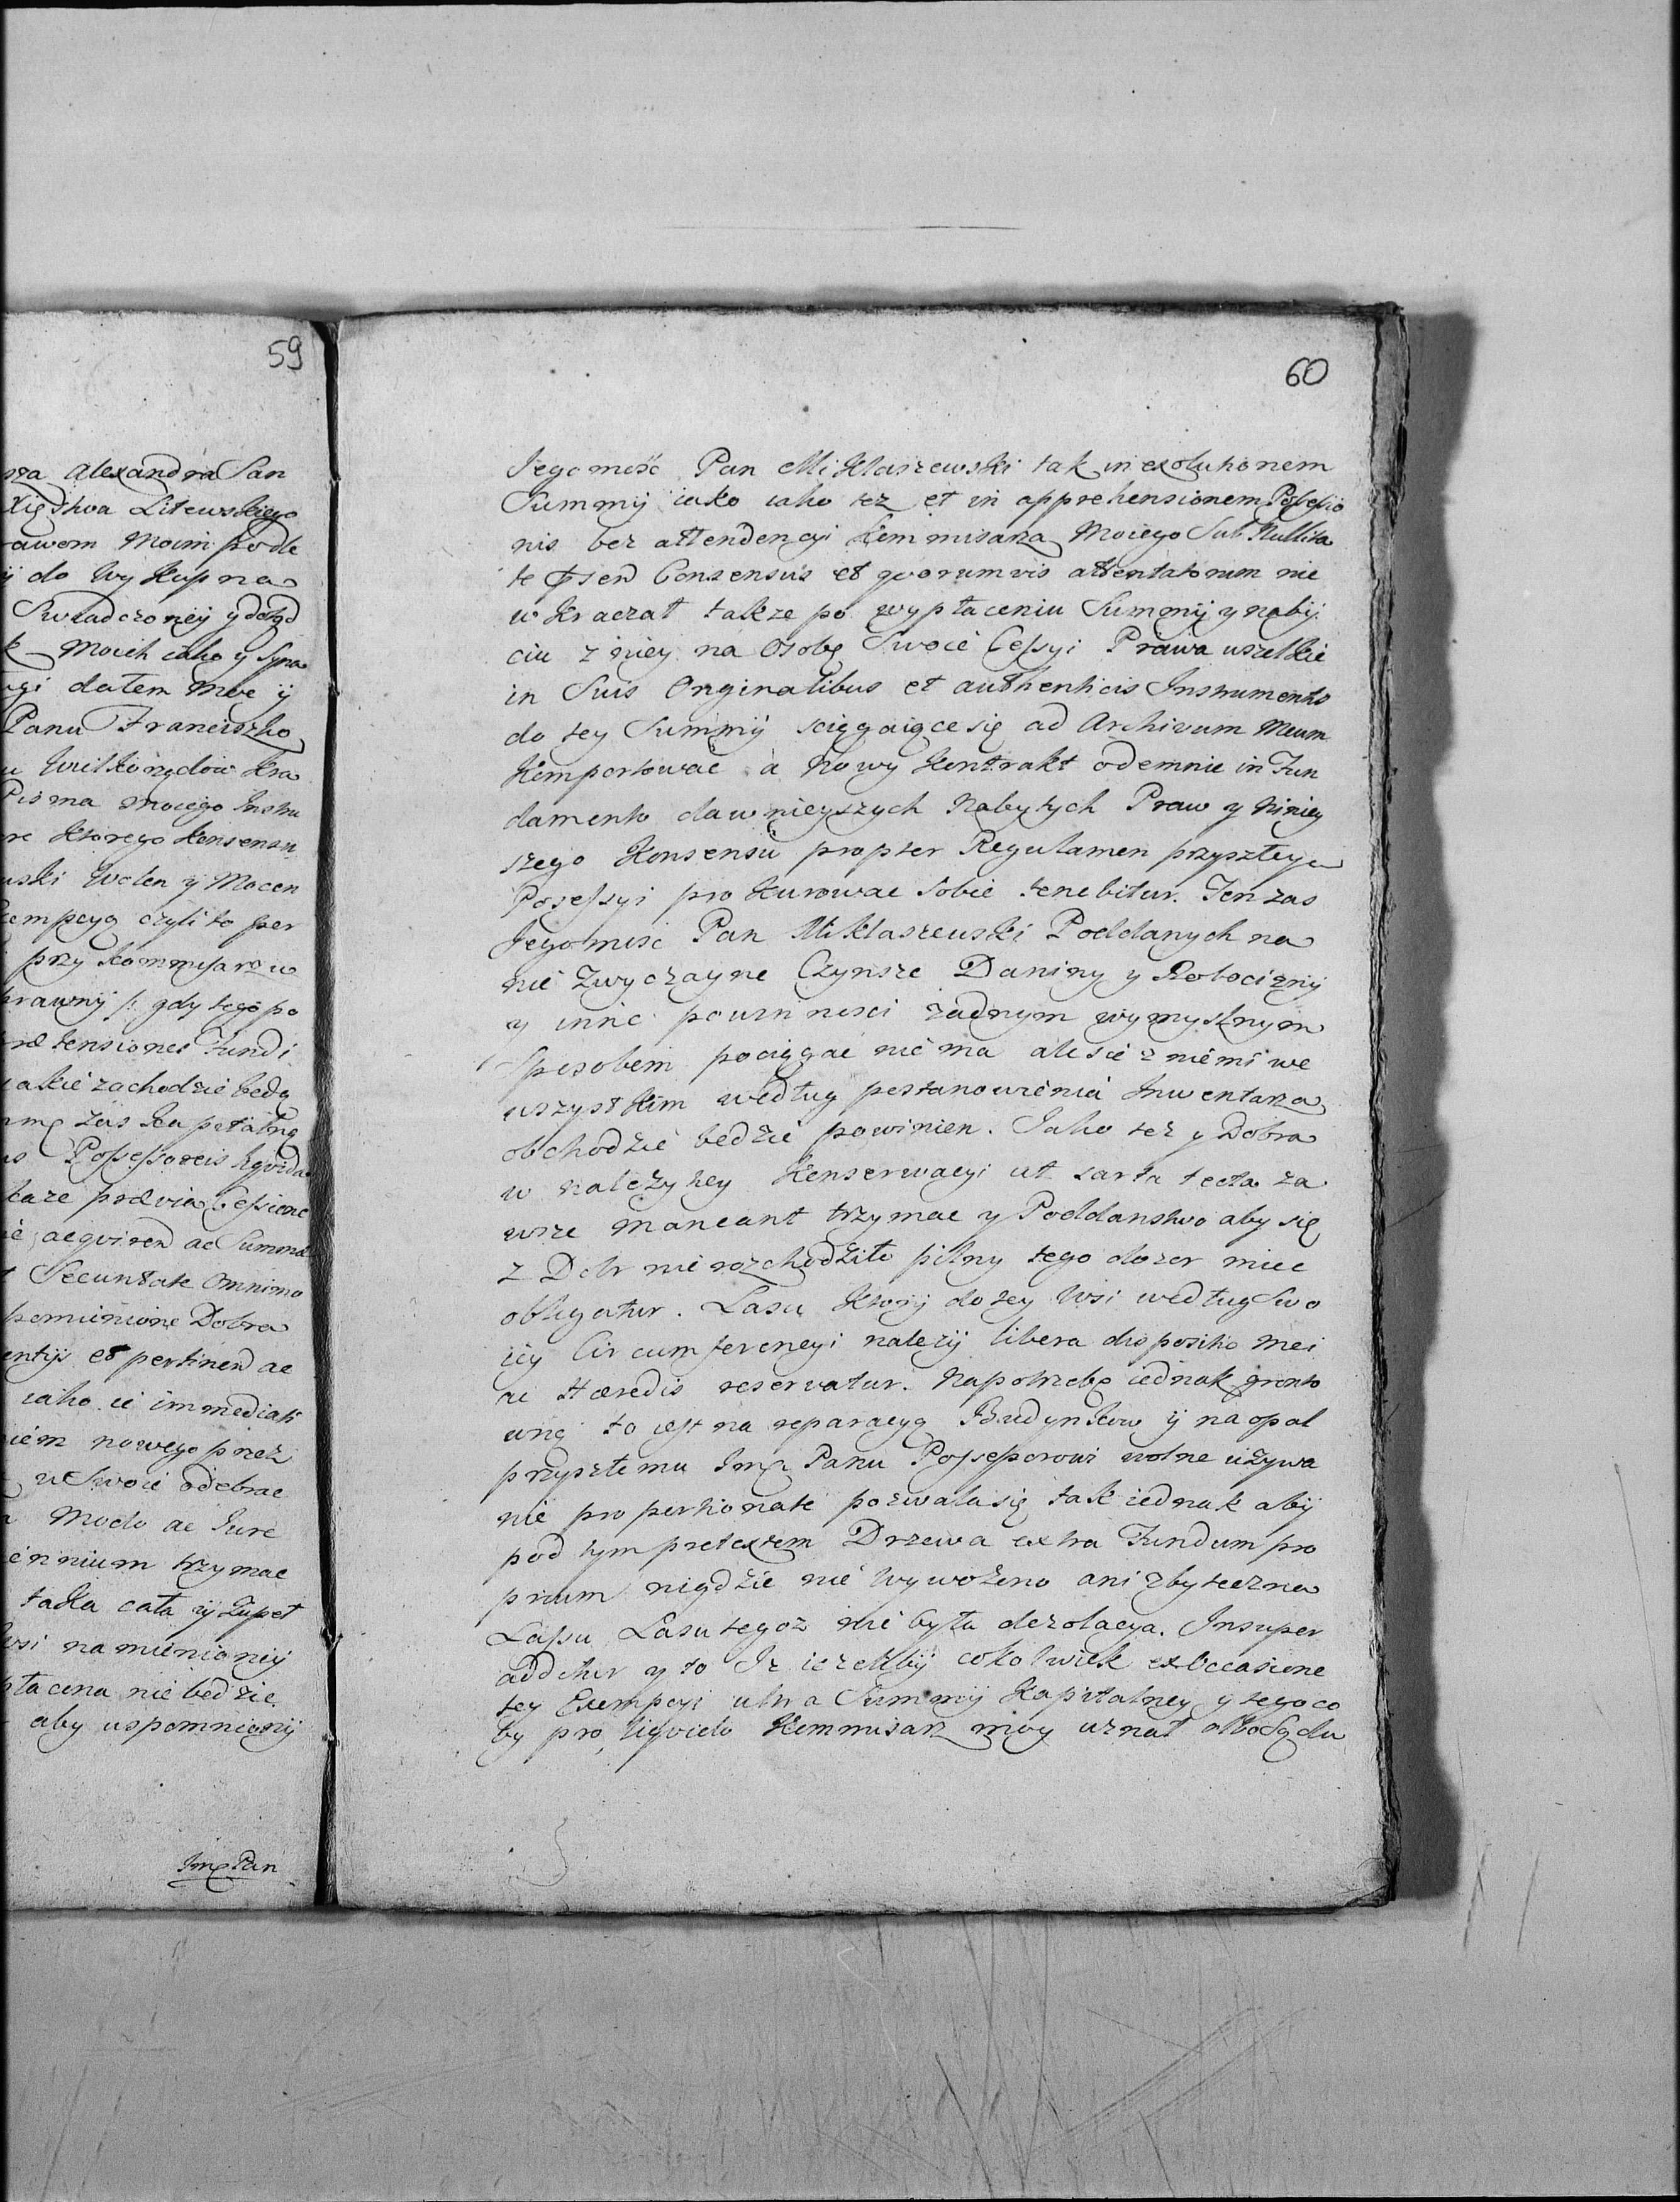 59
sza Alexandra San
Xięstwa Litewskiego
awem Moim podle
ij do Wykupna
Swiadczoneij y dotąd
k Moich iako y Syna
ugi dałem Moc ij
Panu Franciszko
u Wilkonądow Kra
Pisma moiego Instru
re ktorego konsensu
uski Wolen y Mocen
xempcyą czyli to per
przy Kommisarzu
prawnij /: gdy tego po
ræ tensiones Fundi
iakie zachodzić będą
mmę zas Kapitalną
Possessoreis
każe prævia Cessione
acqviren ac Summæ
Securitate Omnimo
pomienione Dobra
entijs et pertinen ac
iako ie immediate
niem nowego prez
w Swoie odebrac
Modo ac Jure
ennium trzymac
taka cała ij Zupeł
wsi namienioneij
płacona nie będzie
aby uspomnioneij
Jmę Pan
60
Jegomość Pan Miklaszewski tak in exolutionem
Summij iako iako tez et in apprehensionem Possessio
nis bez attendencyi Kommisarza Moiego Sub Nullita
te Psen Consensus et qvorumvis attentatorum nie
wkraczał takze po wypłaceniu Summij y nabij
ciu z niey na Osobę Swoie Cessyi Prawa wszelkie
in Suis Originalibus et authenticis Instrumento
do tey Summij sciągaiące się ad Archivum Meum
Komportować a Nowy Kontrakt odemnie in Fun
damento dawnieyszych Nabytych Praw y niniey
szego Konsensu propter Regulamen przyszłeyu
Posessyi prokurowac Sobie tenebitur. Ten zas
Jegomość Pan Miklaszewski Poddanych na
nie Zwyczayne Czynsze Daniny y Robocizny
y inne powinnosci żadnym wymyslnym
Sposobem pociągac nie ma ale sie z niemi we
wszystkim według postanowienia Inwentarza
obchodzić będzie powinien. Jako tez y Dobra
w należytey Konserwacyi ut sarta tecta za
wsze maneant trzymac y Poddanstwo aby się
z Dobr nie rozchodziło pilny tego dozor miec
obligatur. Lasu Ktorij do tey Wsi według Swo
iey Circumferencyi należy libera dispositio mei
ac Hæredis reservatur. Na potrzebę iednak grunto
wną to iest na reparacyą Budynkow ij na opał
przyszłemu Jmę Panu Possessorowi wolne używa
nie proportionate pozwala się tak iednak abij
pod tym pretextem Drzewa extra Fundum pro
prium nigdzie nie Wywożono ani zbyteczna
Lassu Lasu tegoz nie była dezolacya. Insuper
additur y to Iz iezelibij cokolwiek ex Occasione
tey Exempcyi ultra Summij Kapitalney y tego co
by pro liqvido Kommisarz moy uznał albo Sądu